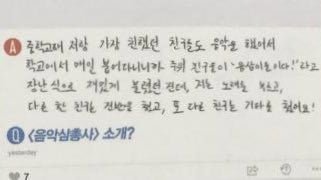 A 중학교때 저랑 가장 친했던 친구들도 음악을 했어서
학교에서 매일 붙어다니니까 주위 친구들이 '음삼이들이다!' 라고
장난 식으로 재밌게 불렀던 건데, 저는 노래를 부르고,
다른 한 친구는 건반을 쳤고, 또 다른 친구는 기타를 쳤어요!
Q <음악삼총사> 소개?
yesterday
7